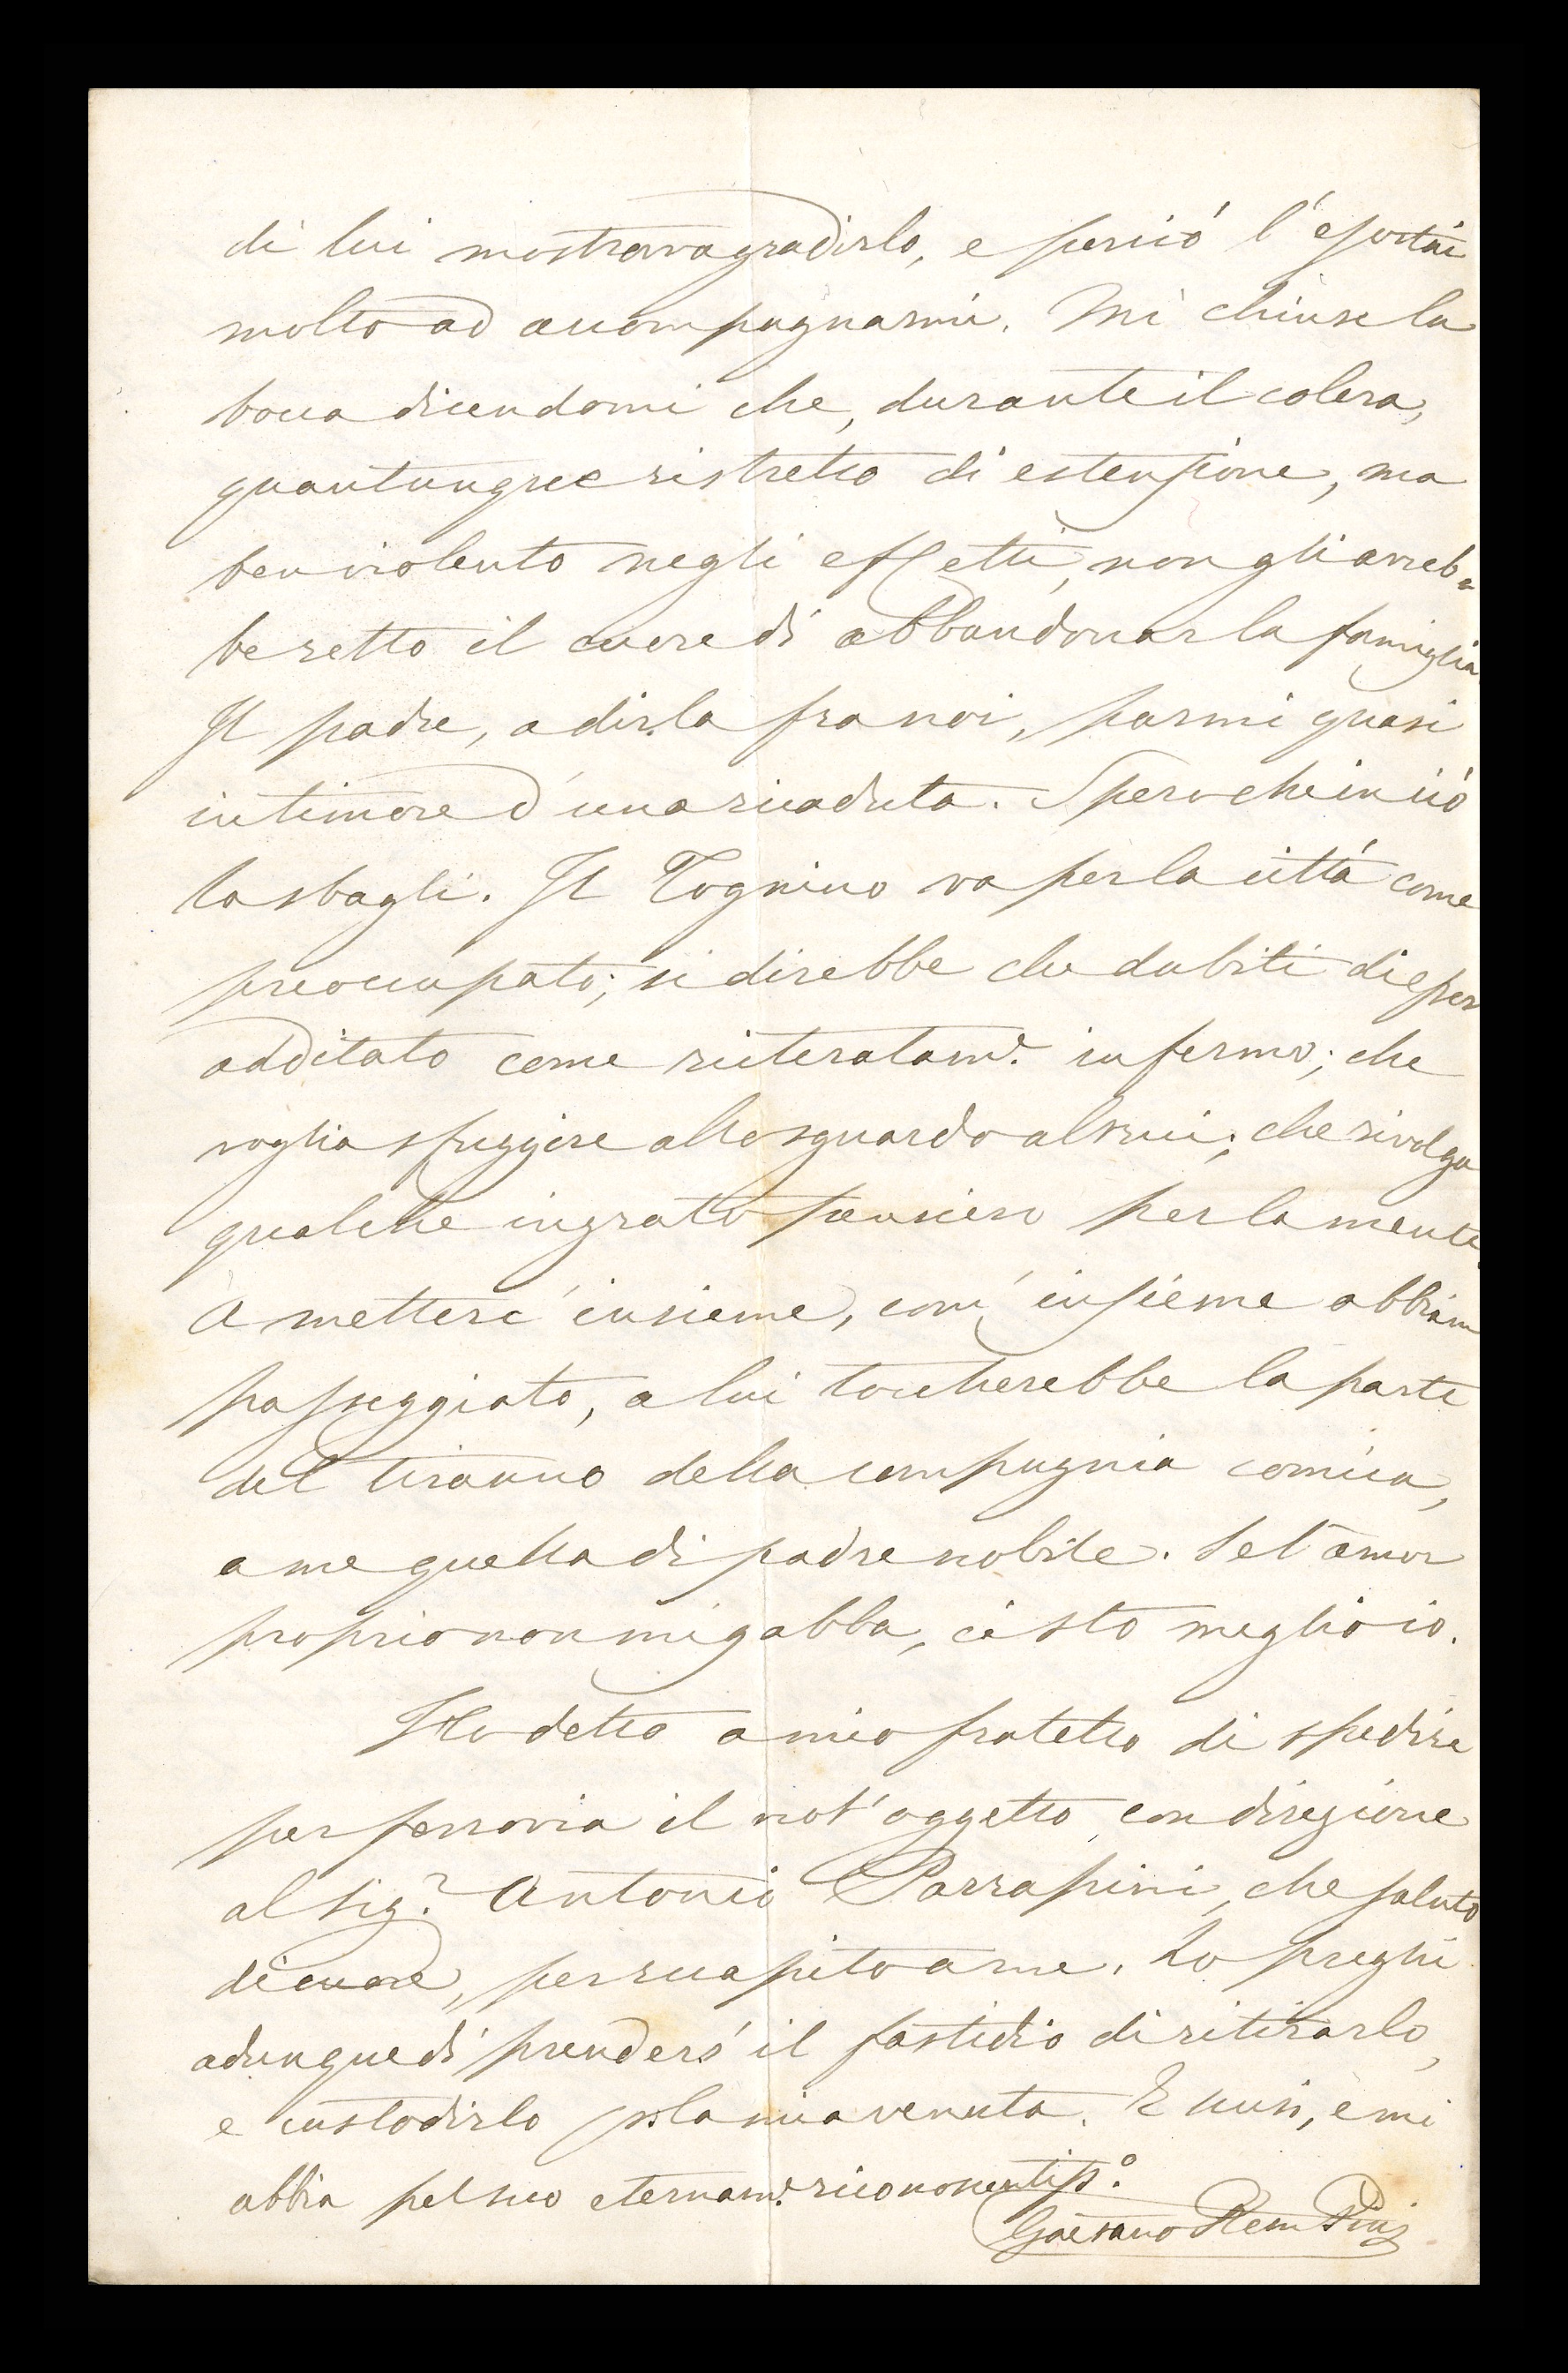 di lui mostrava gradirlo, e perciò l'esortai
molto ad accompagnarmi. Mi chiuse la
bocca dicendomi che, durante il colera,
quantunque ristretto di estensione, ma
ben violento negli effetti, non gli avreb=
be retto il cuore di abbandonar la famiglia.
Il padre, a dirla fra noi, parmi quasi
in timore d'una ricaduta. Spero che in ciò
la sbagli. Il Tognino va per la città come
preoccupato; si direbbe che dubiti di esser
additato come reiteratam.e infermo; che
voglia sfuggire allo sguardo altrui; che rivolga
qualche ingrato pensiero per la mente.
A metterc' insieme, com' insieme abbiam
passeggiato, a lui toccherebbe la parte
del tiranno della compagnia comica,
a me quella di padre nobile. Se l'amor
proprio non mi gabba, ci sto meglio io.
Ho detto a mio fratello di spedire
per ferrovia il not' oggetto con direzione
al Sig.r Antonio che saluto
di cuore, per a me. Lo preghi
adunque di prenders' il fastidio di ritirarlo,
e custodirlo p. la mia venuta. E scusi, e mi
abbia pel suo eternam.e riconoscentiss.o
Gaetano Rem Picci